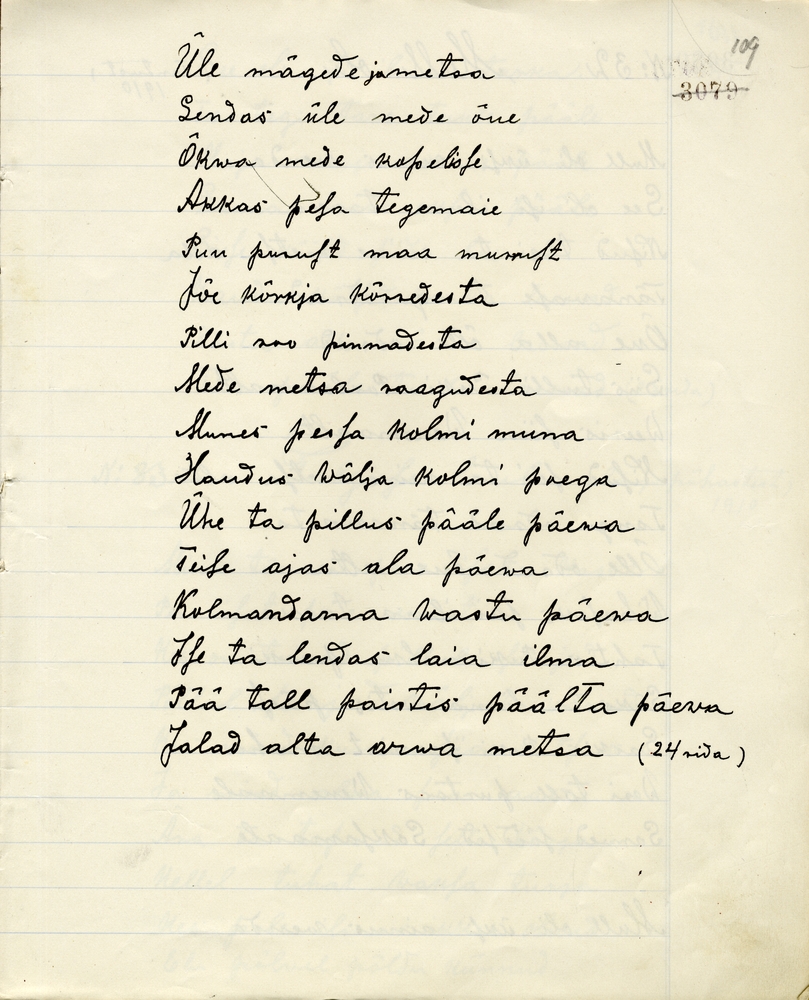 109
3079
Üle mägede ja metsa
Lendas üle mede õue
Õkwa mede kopelisse
Akkas pesa tegemaie
Puu purust maa murust
Jõe kõrkja kõrredesta
Pilli roo pinnadesta
Mede metsa raagudesta
Munes pessa kolmi muna
Haudus wälja kolmi poega
Ühe ta pillus pääle päewa
Teise ajas ala päewa
Kolmandama wastu päewa
Ise ta lendas laia ilma
Pää tall paistis päälta päewa
Jalad alta arwa metsa (24 rida)